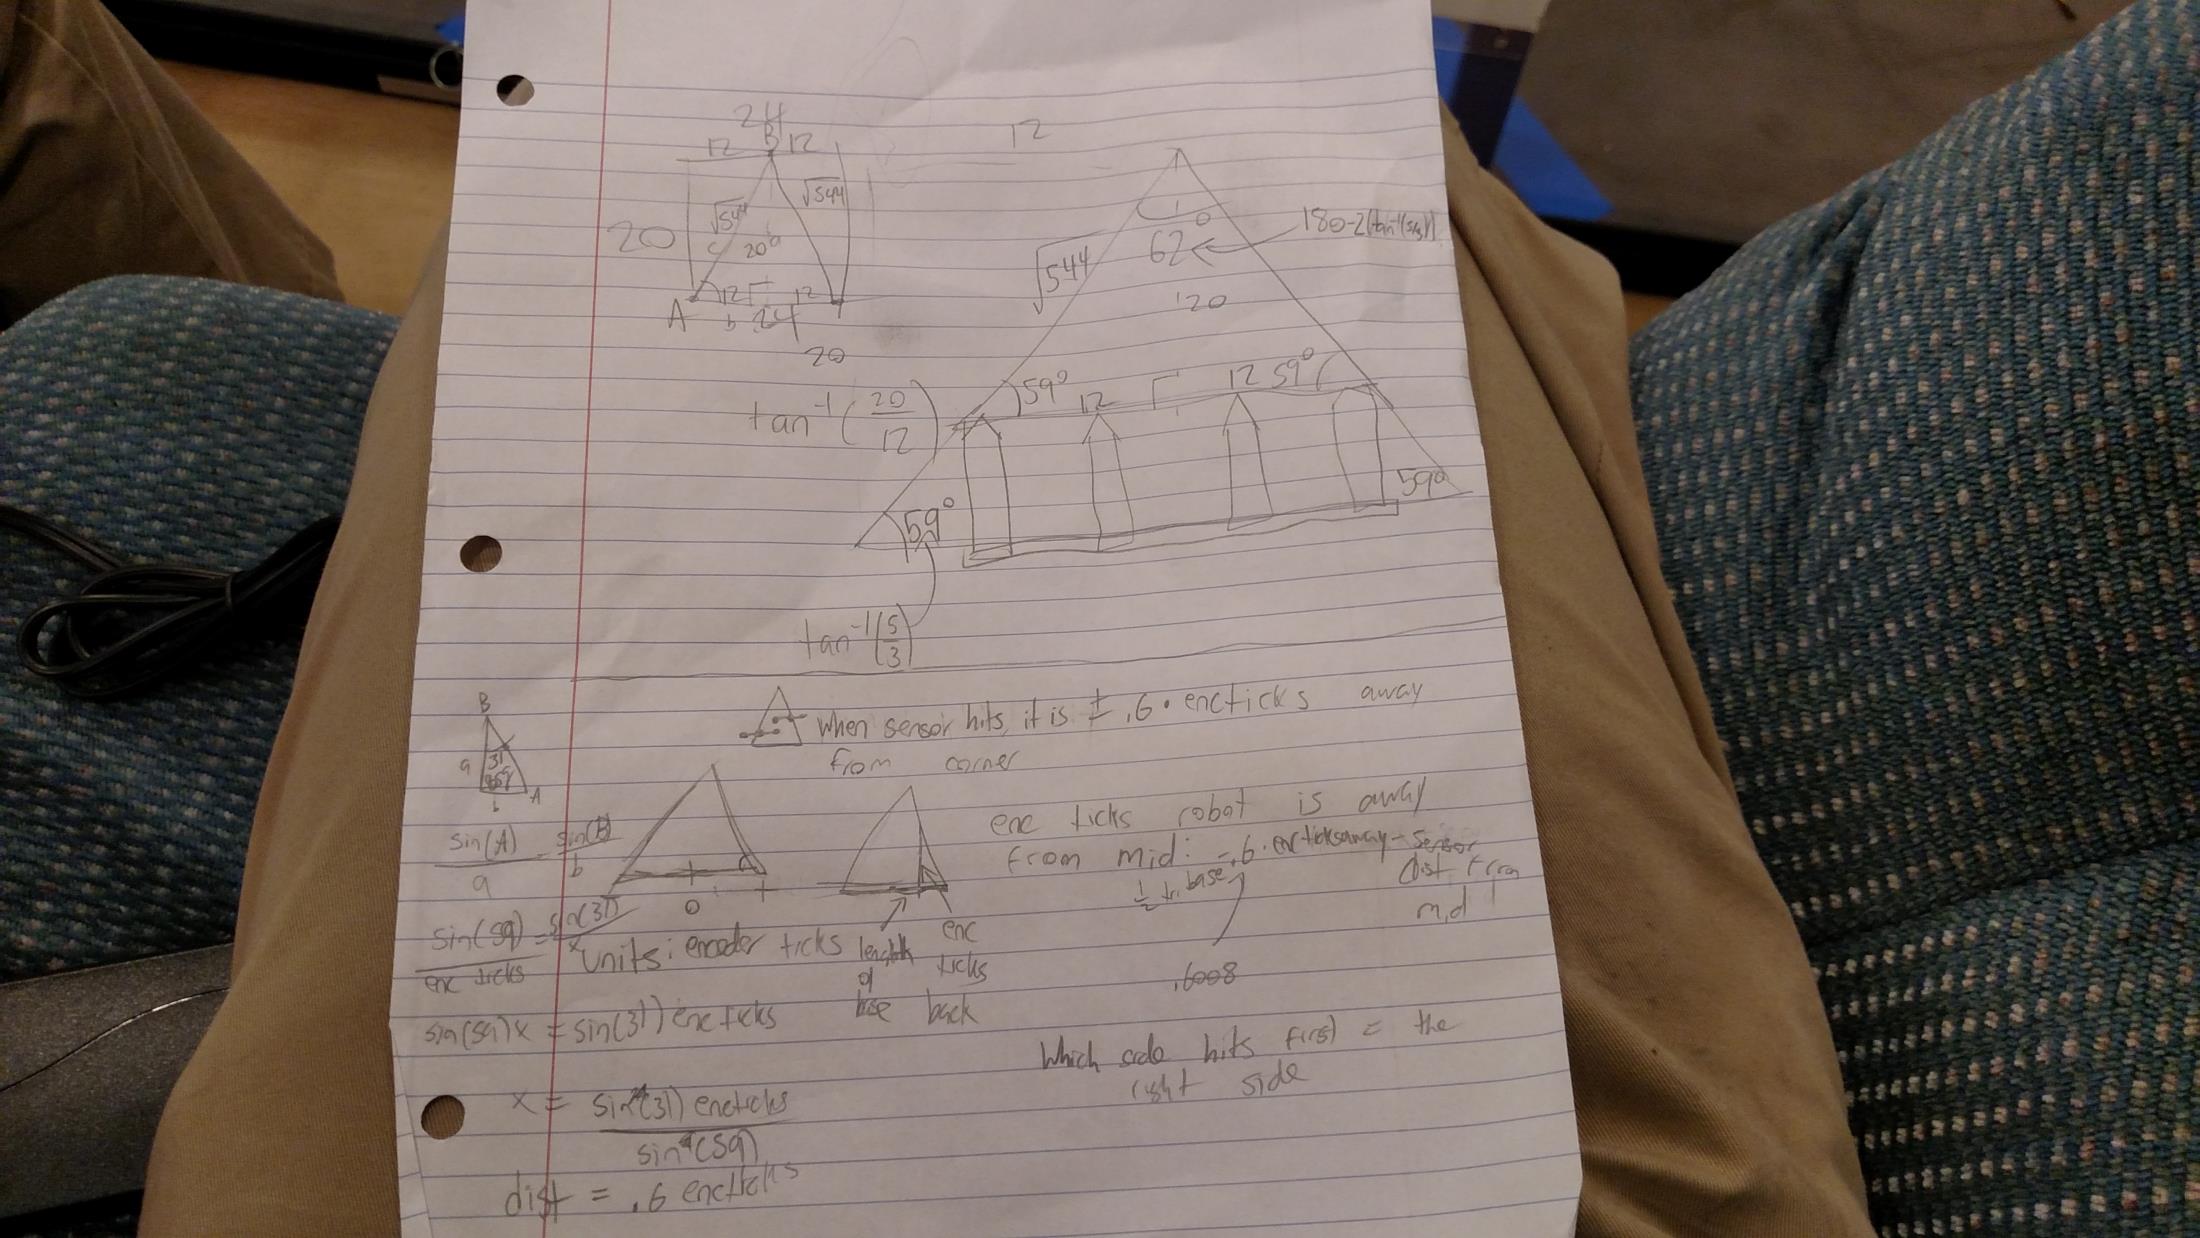 24
12 B 12
12
√544 √544
20 c 20 a
12 12
A b 24
20
√544
62° ← 180-2(tan⁻¹(5/3))
20
tan⁻¹(20/12)
59° 12 12 59°
59° 59°
tan⁻¹(5/3)
when sensor hits, it is ± .6 • encticks away
from corner
B
a 31
59
b A
enc ticks robot is away
from mid: -.6 • encticksaway - sensor
½ tri base dist from
mid
.6008
sin(A)/a = sin(B)/b
0 +
sin(59)/enc ticks = sin(31)/x
units: encoder ticks
length of base
enc ticks back
sin(59)x = sin(31) encticks
Which side hits first = the
right side
x = sin(31) encticks / sin(59)
dist = .6 encticks